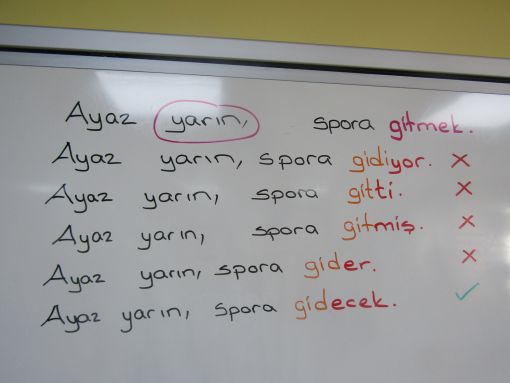 Ayaz yarın, spora gitmek.
Ayaz yarın, spora gidiyor. ×
Ayaz yarın, spora gitti. ×
Ayaz yarın, spora gitmiş. ×
Ayaz yarın, spora gider. ×
Ayaz yarın, spora gidecek. ✓